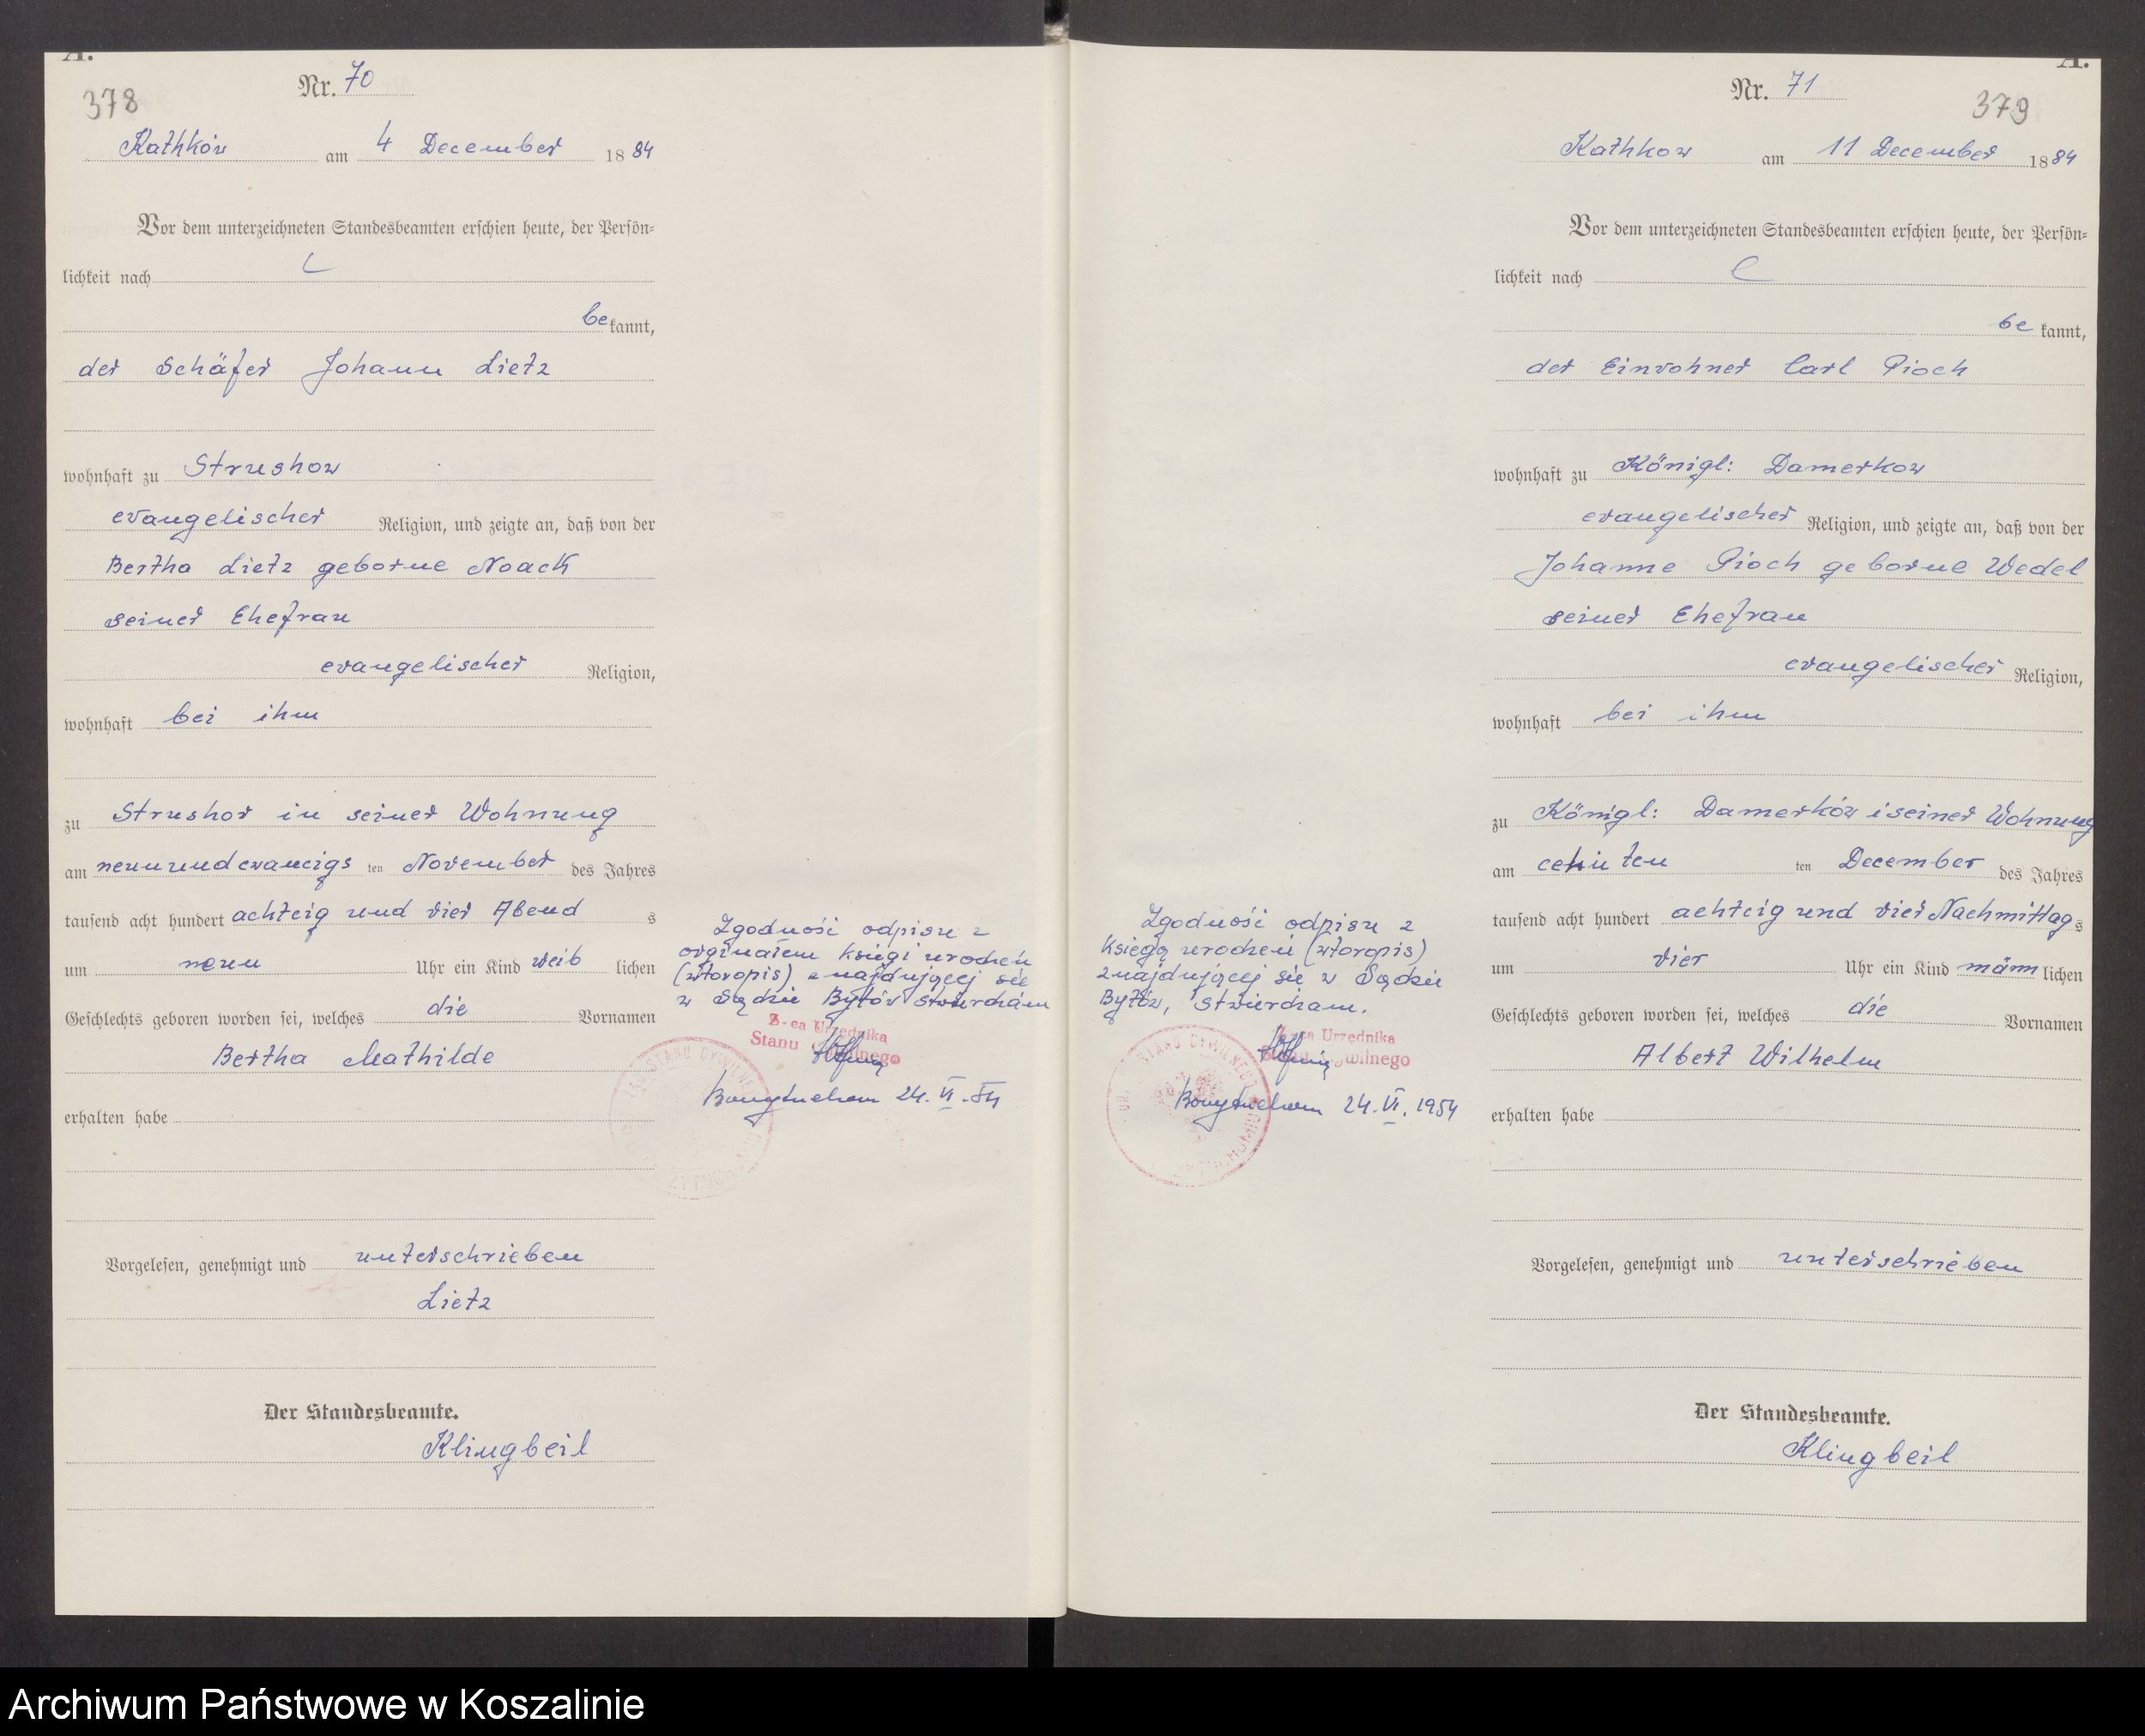 A.
378
Nr. 70
Kathków am 4 December 1884
Vor dem unterzeichneten Standesbeamten erschien heute, der Persön=
lichkeit nach
be kannt,
der Schäfer Johann Lietz
wohnhaft zu Strushow
evangelischer Religion, und zeigte an, daß von der
Bertha Lietz geborne Noack
seiner Ehefrau
evangelischer Religion,
wohnhaft bei ihm
zu Strushov in seiner Wohnung
am neunundcwancigs ten November des Jahres
tausend acht hundert achtcig und vier Abend s
um neun Uhr ein Kind weib lichen
Geschlechts geboren worden sei, welches die Vornamen
Bertha Mathilde
erhalten habe
Vorgelesen, genehmigt und unterschrieben
Lietz
Der Standesbeamte.
Klingbeil
Zgodność odpisu z
orginałem księgi urodzeń
(wtoropis) znajdującej się
w Sądzie Bytów stwierdzam
Z-ca Urzędnika
Stanu Cywilnego
24. VI. 54
A.
Nr. 71
379
Kathkow am 11 December 1884
Vor dem unterzeichneten Standesbeamten erschien heute, der Persön=
lichkeit nach
be kannt,
der Einwohner Carl Pioch
wohnhaft zu Königl: Damerkow
evangelischer Religion, und zeigte an, daß von der
Johanne Pioch geborne Wedel
seiner Ehefrau
evangelischer Religion,
wohnhaft bei ihm
zu Königl: Damerków i seiner Wohnung
am cehnten ten December des Jahres
tausend acht hundert achtcig und vier Nachmittag s
um vier Uhr ein Kind männ lichen
Geschlechts geboren worden sei, welches die Vornamen
Albert Wilhelm
erhalten habe
Vorgelesen, genehmigt und unterschrieben
Der Standesbeamte.
Klingbeil
Zgodność odpisu z
Księgą urodzeń (wtoropis)
znajdującej się w Sądzie
Bytów, stwierdzam.
Z-ca Urzędnika
Stanu Cywilnego
24. VI. 1954
Archiwum Państwowe w Koszalinie